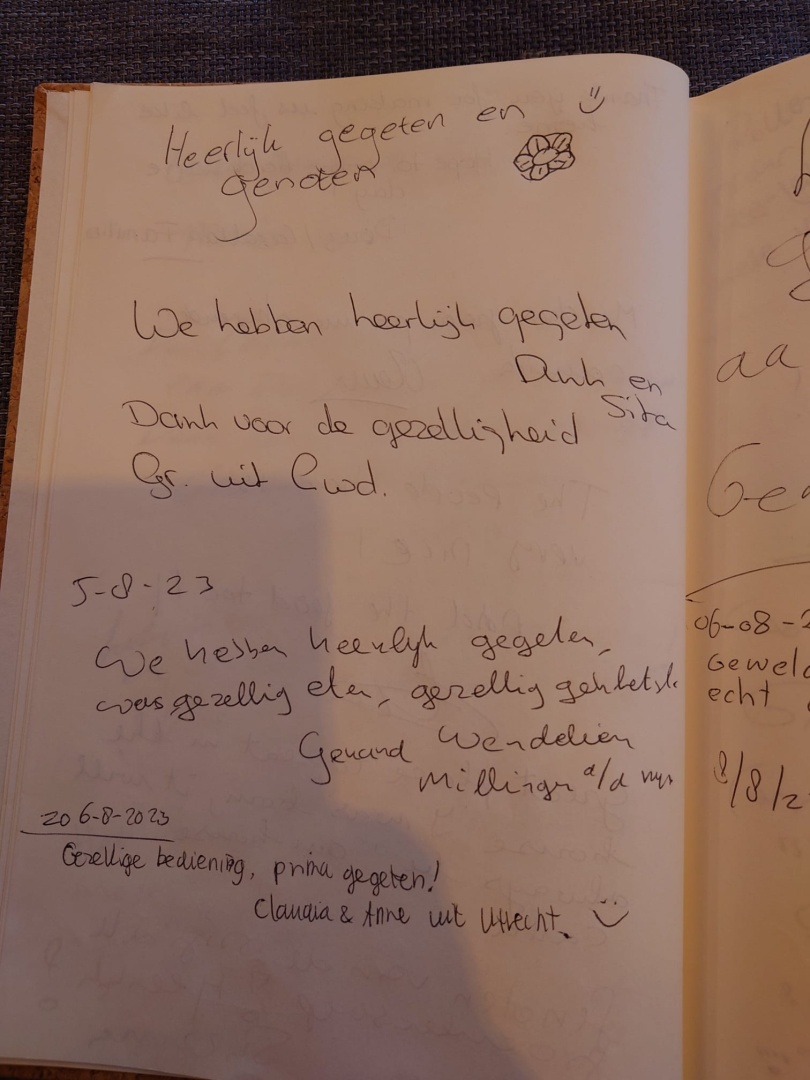 Heerlijk gegeten en
genoten
We hebben heerlijk gegeten
Dank en
Sita
Dank voor de gezelligheid
Gr. uit Lwd.
5-8-23
We hebben heerlijk gegeten,
was gezellig eten, gezellig
Gerard Wendelien
Millingen a/d
zo 6-8-2023
Gezellige bediening, prima gegeten!
Claudia & Anne uit Utrecht.
aa
Ge
06-08-2
Gewel
echt
8/8/2